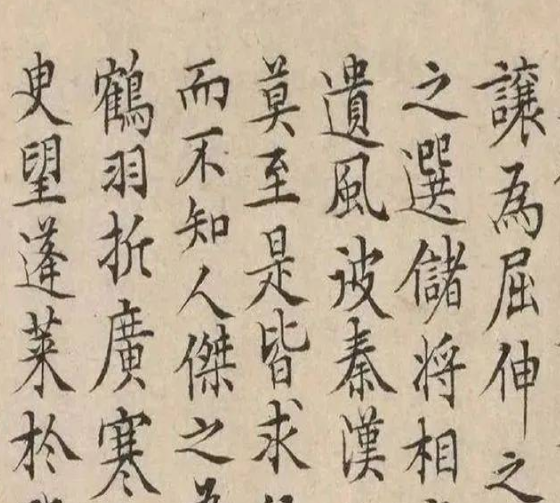 讓為屈伸之
之選儲將相
遺風波秦漢
莫至是皆求
而不知人傑之
鶴羽折廣寒
叓望蓬莱於